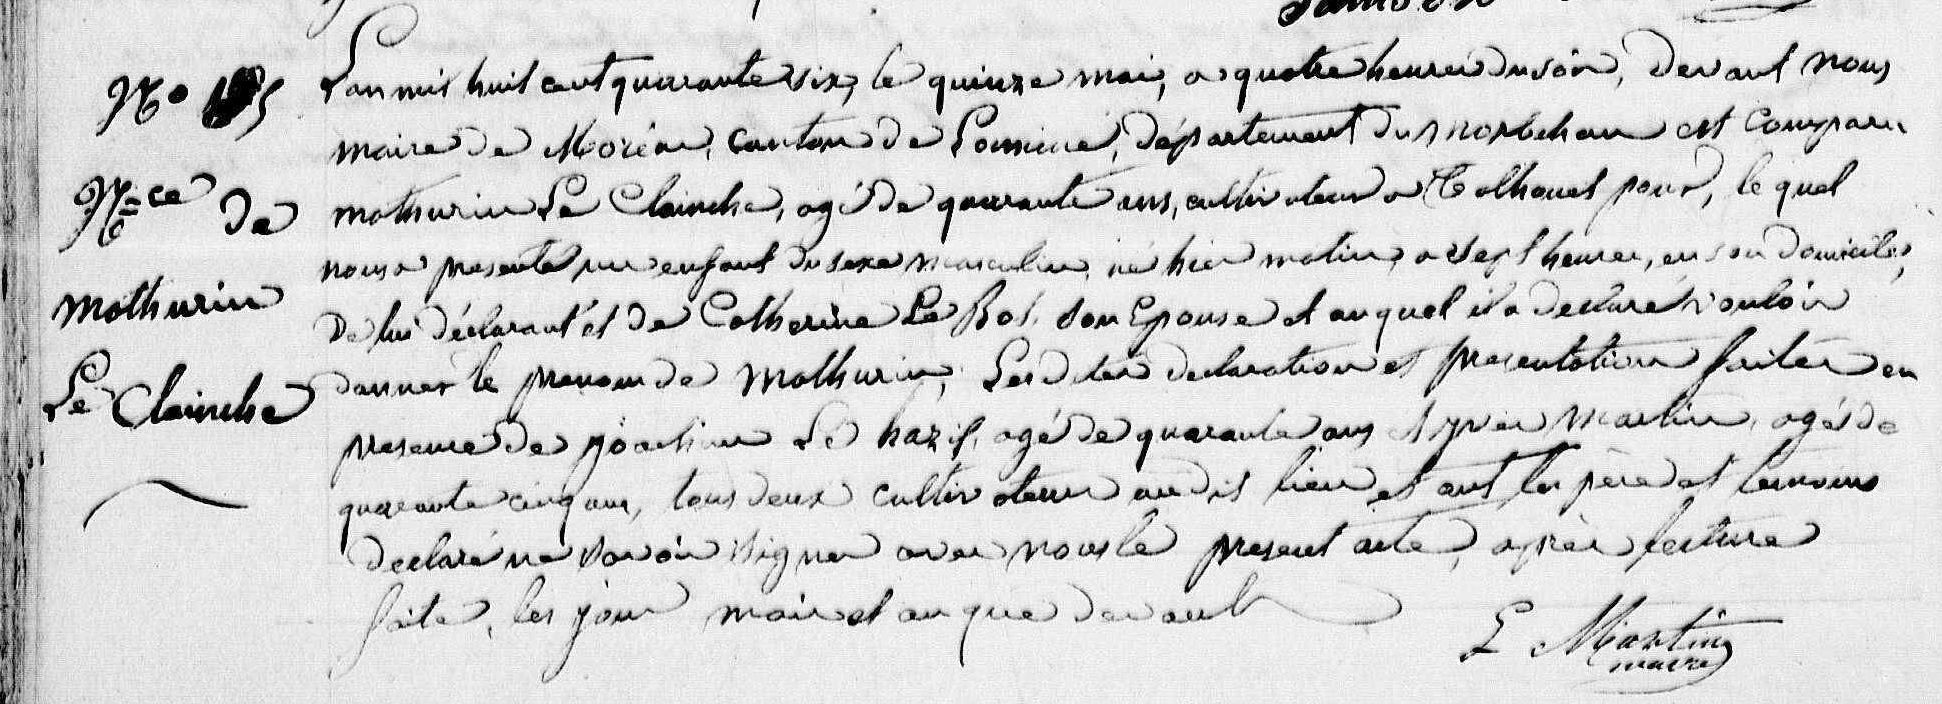 Lan mil huit cent quarante six, le quinze mai, a quatre heures du soir, devant nous
maire de Moréac, canton de Locminé, département du morbihan est comparu
mathurin Le Clainche, agé de quarante ans, cultivateur a Tolhouet pour, le quel
nous a presenté un enfant du sexe masculin, né hier matin, a sept heures, en son domicile,
de lui déclarant et de Catherine Le Bot son Epouse et auquel il a declaré vouloir
donner le prenom de Mathurin, Les dites declaration et presentation faites en
presence de joachim Le hazif, agé de quarante ans et yves Martin, agés de
quarante cinq ans, tous deux cultivateurs au dit lieu et ont les père et temoins
declaré ne savoir signer avec nous le present acte, après lecture
faite, les jour mois et an que devant
N°
N=ce de
Mathurin
Le Clainche
L Martin
maire